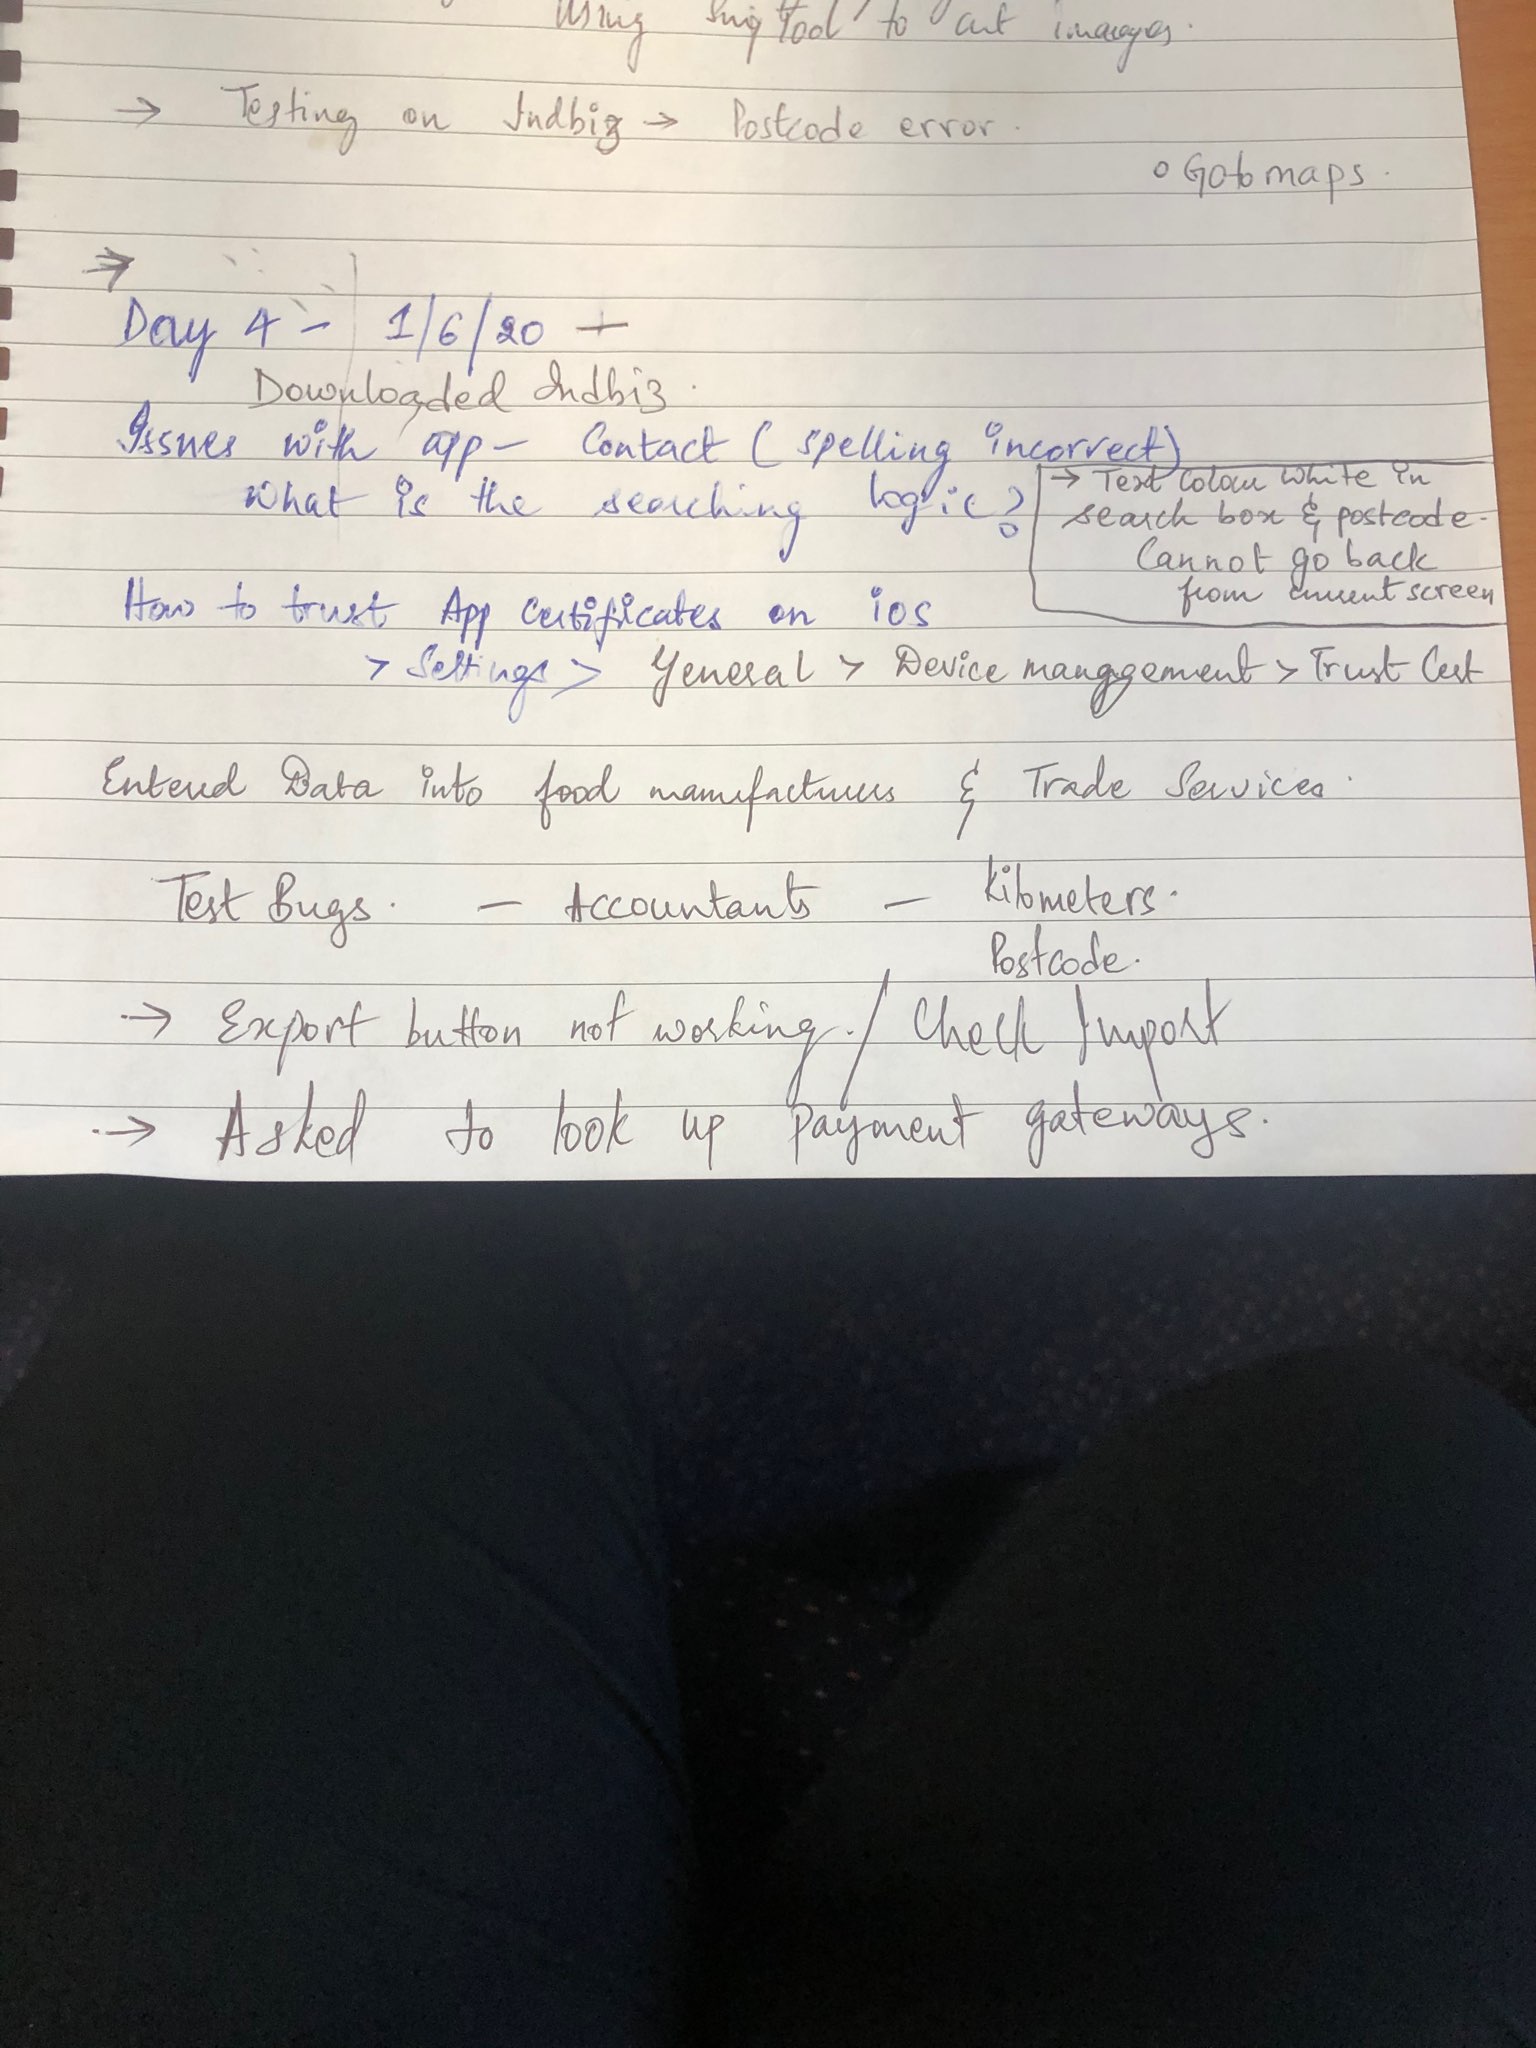 Using Snip Tool to cut images.
→ Testing on Indbiz → Postcode error.
o Go to maps.
Day 4 - 1/6/20 -
Downloaded Indbiz.
Issues with app - Contact (spelling incorrect)
What is the searching logic?
→ Text Colour White in
search box & postcode.
Cannot go back
from current screen
How to trust App Certificates on ios
> Settings > General > Device management > Trust Cert
Entered Data into food manufacturers & Trade Services.
Test Bugs. - Accountants - Kilometers.
Postcode.
→ Export button not working. / Check Import
→ Asked to look up payment gateways.